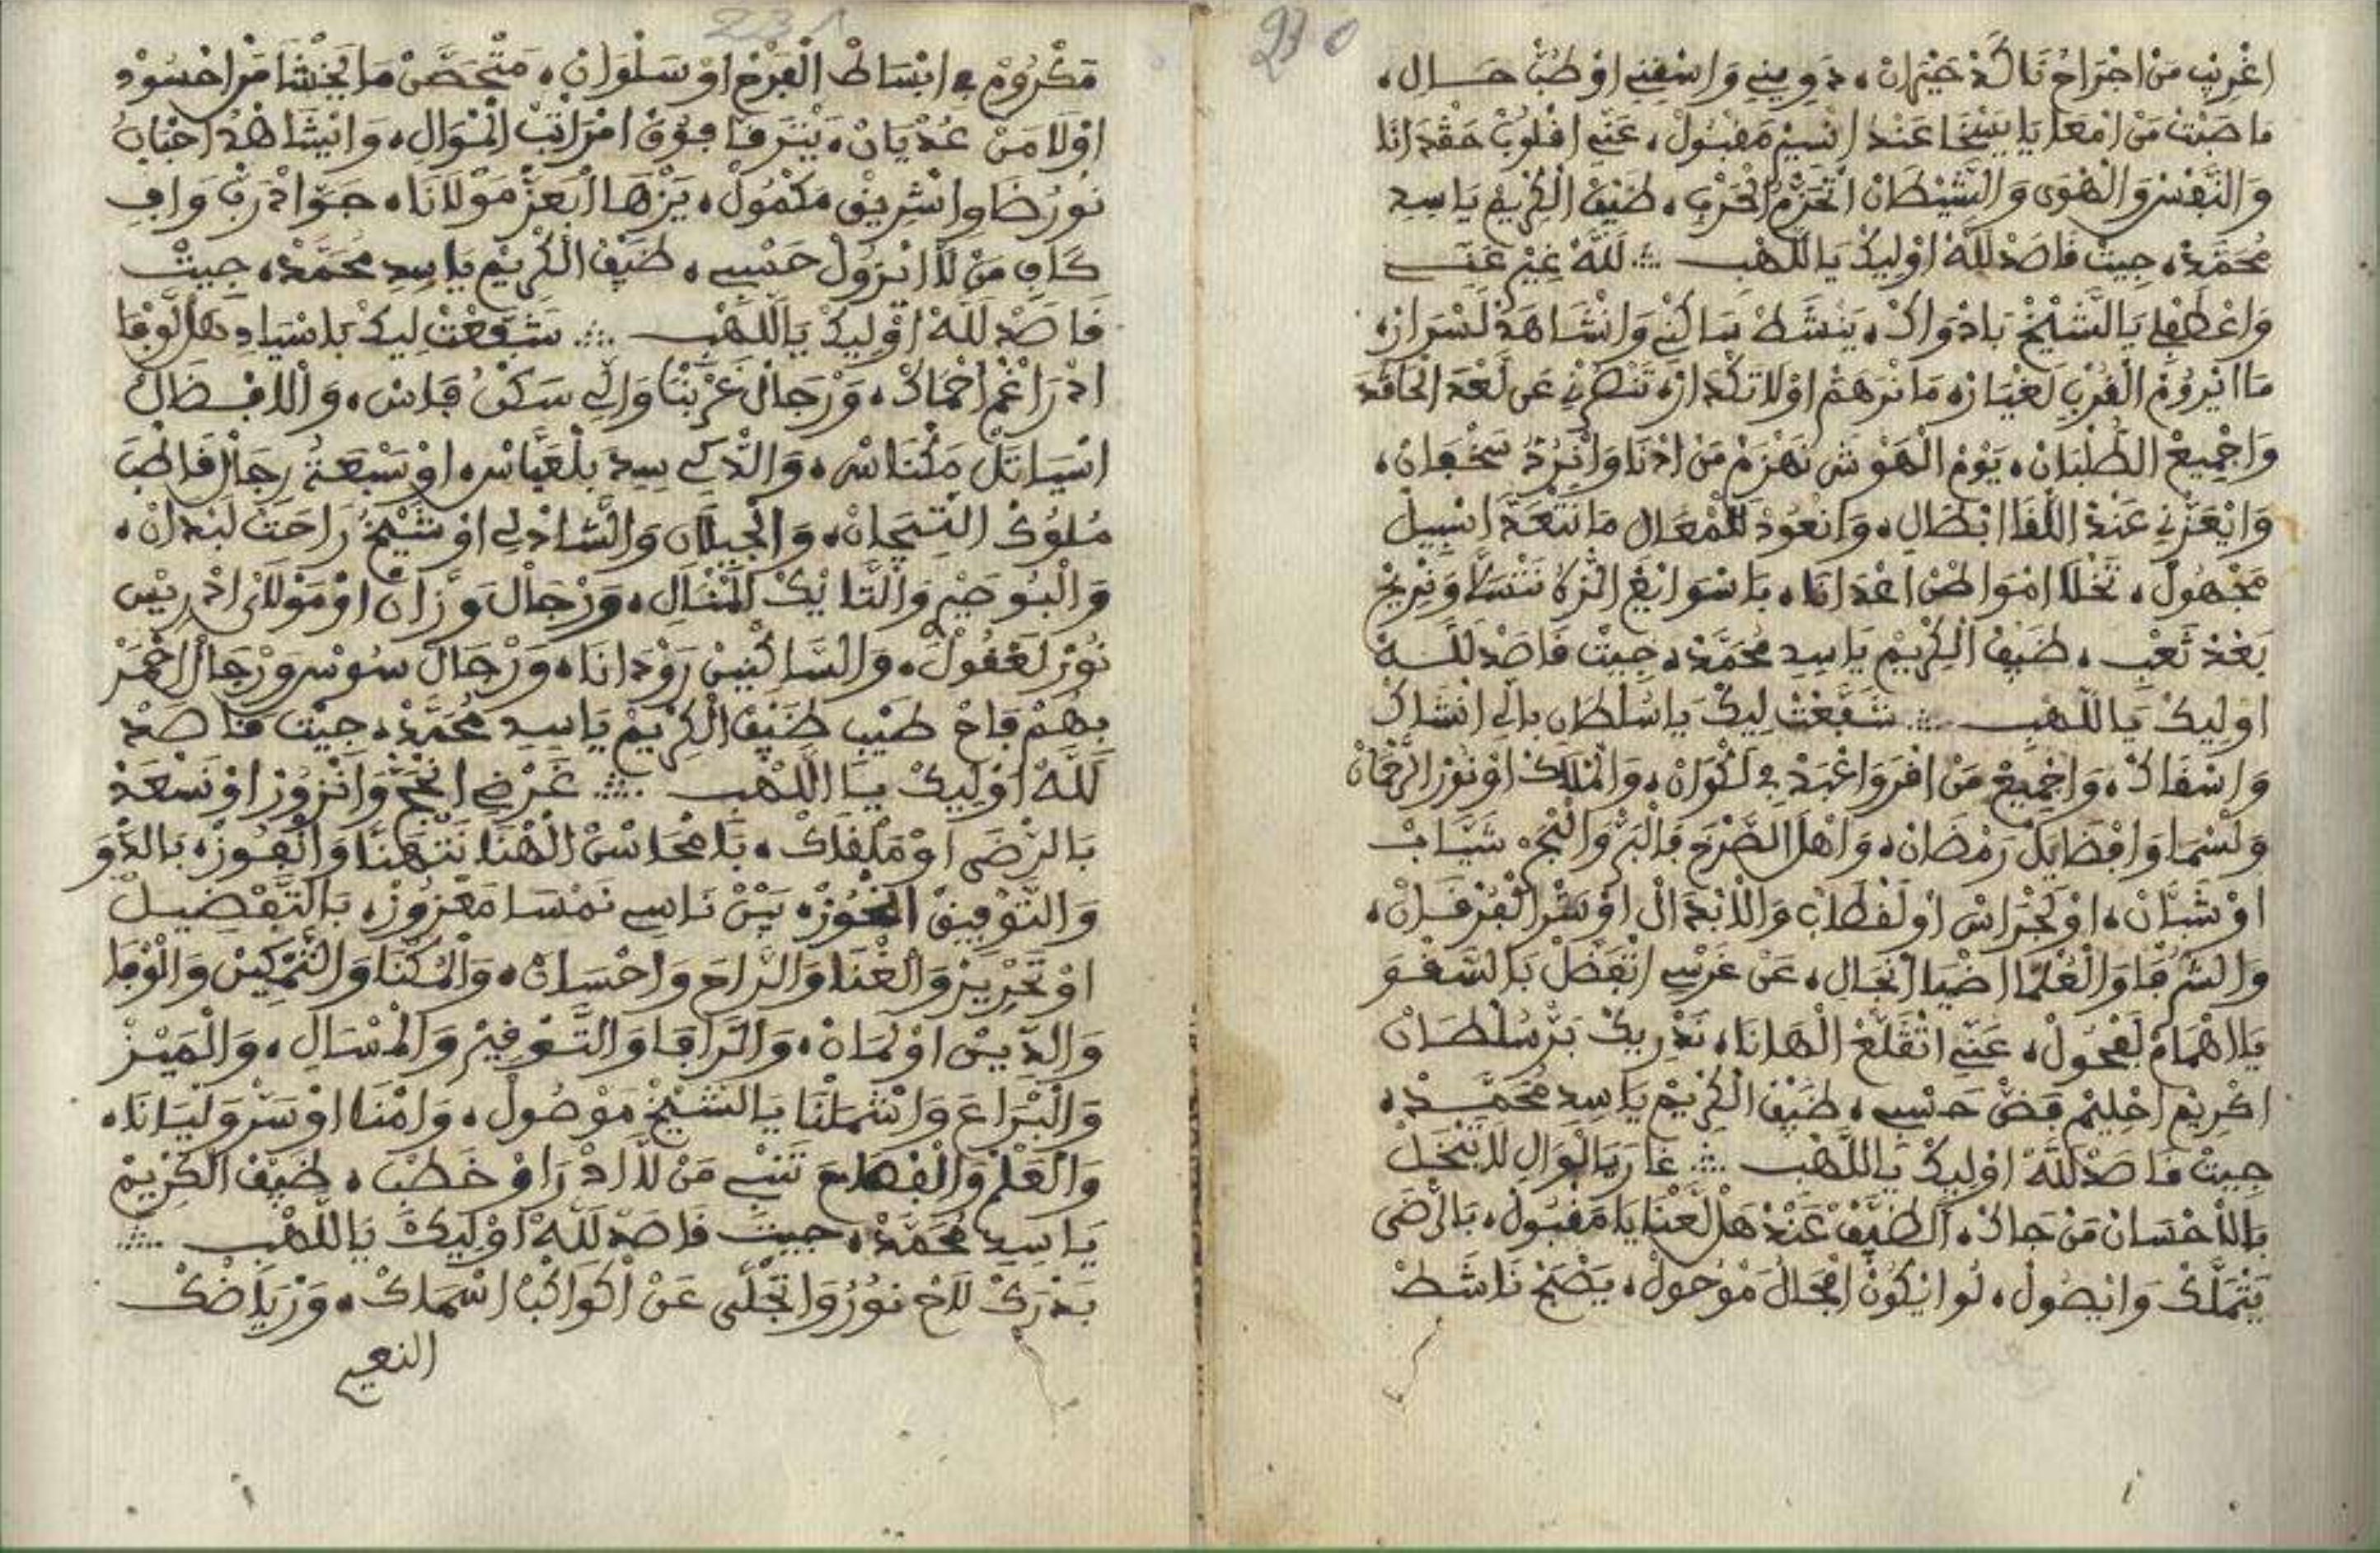 230
اغْرِيبْ مَنْ اجْرَاحُ نَاكَدْ حَيْرَانْ، دَوِينِي وَاسْقِينِي اوْ طُبْ حَـالِ،
مَا صَبْتْ مَنْ امْعَا يَا يَنْخَا عَنْدْ انْسِيمْ مَقْبُولْ، عَنِّي اقْلُوبْ حَقْدَانَا
وَالنَّفْسْ وَالْهْوَى وَالشَّيْطَانْ اتْحَزَّمْ الْحَرْبِ، ضَيْفْ الْكْرِيمْ يَا سِيدِ
مُحَمَّدْ، جِيتْ قَاصَدْ لَلَّهْ اوْلِيكْ يَا اللَّهْبِ ∴ لَلَّهْ غِيرْ عَنِّي
وَاعْطَفْلِي يَا الشِّيخْ بَادْوَاكْ، يَنْشَطْ سَاكْنِي وَانْشَاهَدْ لَسْرَارْ،
مَا انْرُومْ الْقُرْبِ لَغْيَارْ، مَا نَرْهَمْ اوْلَا تَكْدَارْ، تَنْصُرْنِي عَنْ لَعْدَ الْحَاقْدَ
وَاجْمِيعْ الطُّلْبَانْ، يَوْمْ الْهَوْشْ نَهْزَمْ مَنْ ادْنَا وَانْرُدْ سَخْفَانْ،
وَايْعَزْنِي عَنْدْ اللْقَا ابْطَالِ، وَانْعُودْ لَلْمْعَالِ مَا نَتْعَدَّ انْسِيلْ
مَجْهُولْ، تَخْلَا امْوَاطَنْ اعْدَانَا، بَاسْوَابْغْ التَّرْكْ نَتْسَلَّا وَنْرِيحْ
بَعْدْ تَعْبِ، ضَيْفْ الْكْرِيمْ يَا سِيدِ مُحَمَّدْ، جِيتْ قَاصَدْ لَلَّـهْ
اوْلِيكْ يَا اللَّهْبِ ∴ شَفَّعْتْ لِيكْ يَا سُلْطَانِ بَالِّي انْشَاكْ
وَاسْقَاكْ، وَاجْمِيعْ مَنْ اقْرَ وَاعْبَدْ فِي لَكْوَانْ، وَالْمْلَكْ اوْ نُورْ الرَّحْمَانْ
وَلَسْمَا وَافْضَايَلْ رَمْضَانْ، وَاهْلْ الضْرَحْ فَالْبَرْ وَالنَّجْ، شَيَّابْ
اوْ شَبَّانْ، اوْ لَجْرَاسْ اوْ لَقْطَابْ وَالَابْدَالْ اوْ سَرْ الْفُرْقَـانْ،
وَالشُّرْفَا وَالْعُلَمَا اضْيَا انْجَالِ، عَنْ غَرْسِي اتْفَضَّلْ بَالسَّقْـوَ
يَا اهْمَامْ لَفْحُولْ، عَنِّي اتْقَلَّعْ الْهَانَا، نَدْرِيكْ بَرْ سُلْطَـانْ
اكْرِيمْ احْلِيمْ فَضْ حَسْبِي، ضَيْفْ الْكْرِيمْ يَا سِيدِ مُحَمَّـدْ،
جِيتْ قَاصَدْ لَلَّهْ اوْلِيكْ يَا اللَّهْبِ ∴ غَارَ يَا لْوَالِ لَا تَبْخَـلْ
بَالَاحْسَانْ مَنْ جَاكْ، الضَّيْفْ عَنْدْ هَلْ لَعْنَا يَا مَقْبُولْ، بَالرْضَى
يَتْمَلَّكْ وَايْصُولْ، لُو ايْكُونْ امْحَالْ مَوْحُولْ، يَصْبَحْ نَاشَطْ
231
مَكْرُومْ فِي ابْسَاطْ الْفَرْحْ اوْ سَلْوَانْ، مَتْحَصَّنْ مَا يَخْشَا مَنْ احْسُودْ
اوْلَا مَنْ عُدْيَانْ، يَتْرَقَّا فُوقْ امْرَاتَبْ الْمْوَالِ، وَايْشَاهَدْ احْبَابُ
نُورْ ضَاوِ انْشْرِيقْ مَكْمُولْ، يَزْهَا ابْعَزّْ مَوْلَانَا، جَوَّادْ رَبِّ وَافِي
كَافِي مَنْ لَا ايْزُولْ حَسْبِي، ضَيْفْ الْكْرِيمْ يَا سِيدِ مُحَمَّدْ، جِيتْ
قَاصَدْ لَلَّهْ اوْلِيكْ يَا اللَّهْبِ ∴ شَفَّعْتْ لِيكْ بَاسْيَادِ هَلْ لَوْفَا
ادْرَاغَمْ احْمَاكْ، وَرْجَالْ غَرْبْنَا وَالِّي سَكْنُ فَاسْ، وَالَافْضَالْ
اسْيَاتَلْ مَكْنَاسْ، وَالذَّكِي سِيدِ بَلْعَبَّاسْ، اوْ سَبْعَةُ رِجَالْ قَاطْبَ
مُلُوكْ التِّيجَانْ، وَالْجِيلَانِ وَالشَّادْلِي اوْ شَيْخُ رَاحَتْ لَبْدَانْ،
وَالْبُوصِيرِ وَالتَّايَكْ الْمْنَالِ، وَرْجَالْ وَزَّانْ اوْ مَوْلَايْ ادْرِيسْ
نُورْ لَعْقُولْ، وَالسَّاكْنِينْ رَوْدَانَا، وَرْجَالْ سُوسْ وَرْجَالْ احْمَرْ
بِهُمْ فَاحْ طَيْبِ ضَيْفْ الْكْرِيمْ يَا سِيدِ مُحَمَّدْ، جِيتْ قَاصَدْ
لَلَّهْ اوْلِيكْ يَـا اللَّهْبِ ∴ غَرْضِي انْحَجّْ وَانْزُورْ اوْ نَسْعَدْ
بَالرْضَى اوْ مَلْقَاكْ، يَا مْحَاسْنْ الْهْنَا نَتْهَنَّا وَانْفُوزْ، بَالدْوَ
وَالتَّوْفِيقْ انْحُوزْ، بَيْنْ نَاسِي نَمْسَا مَعْزُوزْ، بَالتَّفْضِيـلْ
اوْ تَحْرِيرْ وَالْغْنَا وَالرَّاحَ وَاحْسَانْ، وَالْمُكْنَا وَالتَّمْكِينْ وَالْوْفَا
وَالدِّينْ اوْ لَمَانْ، وَالرَّافَا وَالتَّـوْقِيرْ وَالْمْسَالِ، وَالْمَيْـزْ
وَالْبْرَاعَ وَاشْمَلْنَا يَا الشِّيخْ مَوْصُولْ، وَامْنَا اوْ سَرْ وَلْيَانَا،
وَالْعَلْمْ وَالْفْهَامَ تَنْبِي مَنْ لَا ادْرَاوْ خَطْبِ، ضَيْفْ الْكْرِيمْ
يَا سِيدِ مُحَمَّدْ، جِيتْ قَاصَدْ لَلَّهْ اوْلِيكْ يَا اللَّهْبِ ∴
بَدْرَكْ لَاحْ نُورُ وَاتْجَلَّى عَنْ اكْوَاكْبْ اسْمَاكْ، وَرْيَاضَكْ
النعيم